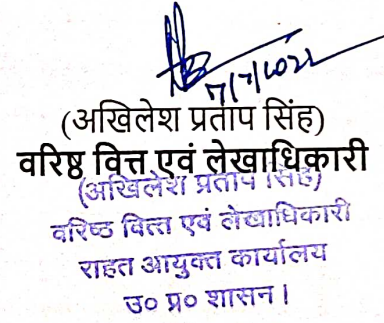 7/7/2022
(अखिलेश प्रताप सिंह)
वरिष्ठ वित्त एवं लेखाधिकारी
(अखिलेश प्रताप सिंह)
वरिष्ठ वित्त एवं लेखाधिकारी
राहत आयुक्त कार्यालय
उ० प्र० शासन।